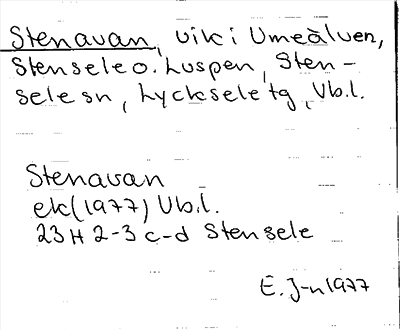 Stenavan, vik i Umeälven,
Stensele o. Luspen, Sten-
sele sn, Lycksele tg, Vb.l.
Stenavan
ek(1977) Vb.l.
23H 2-3 c-d Stensele
E. J-n 1977